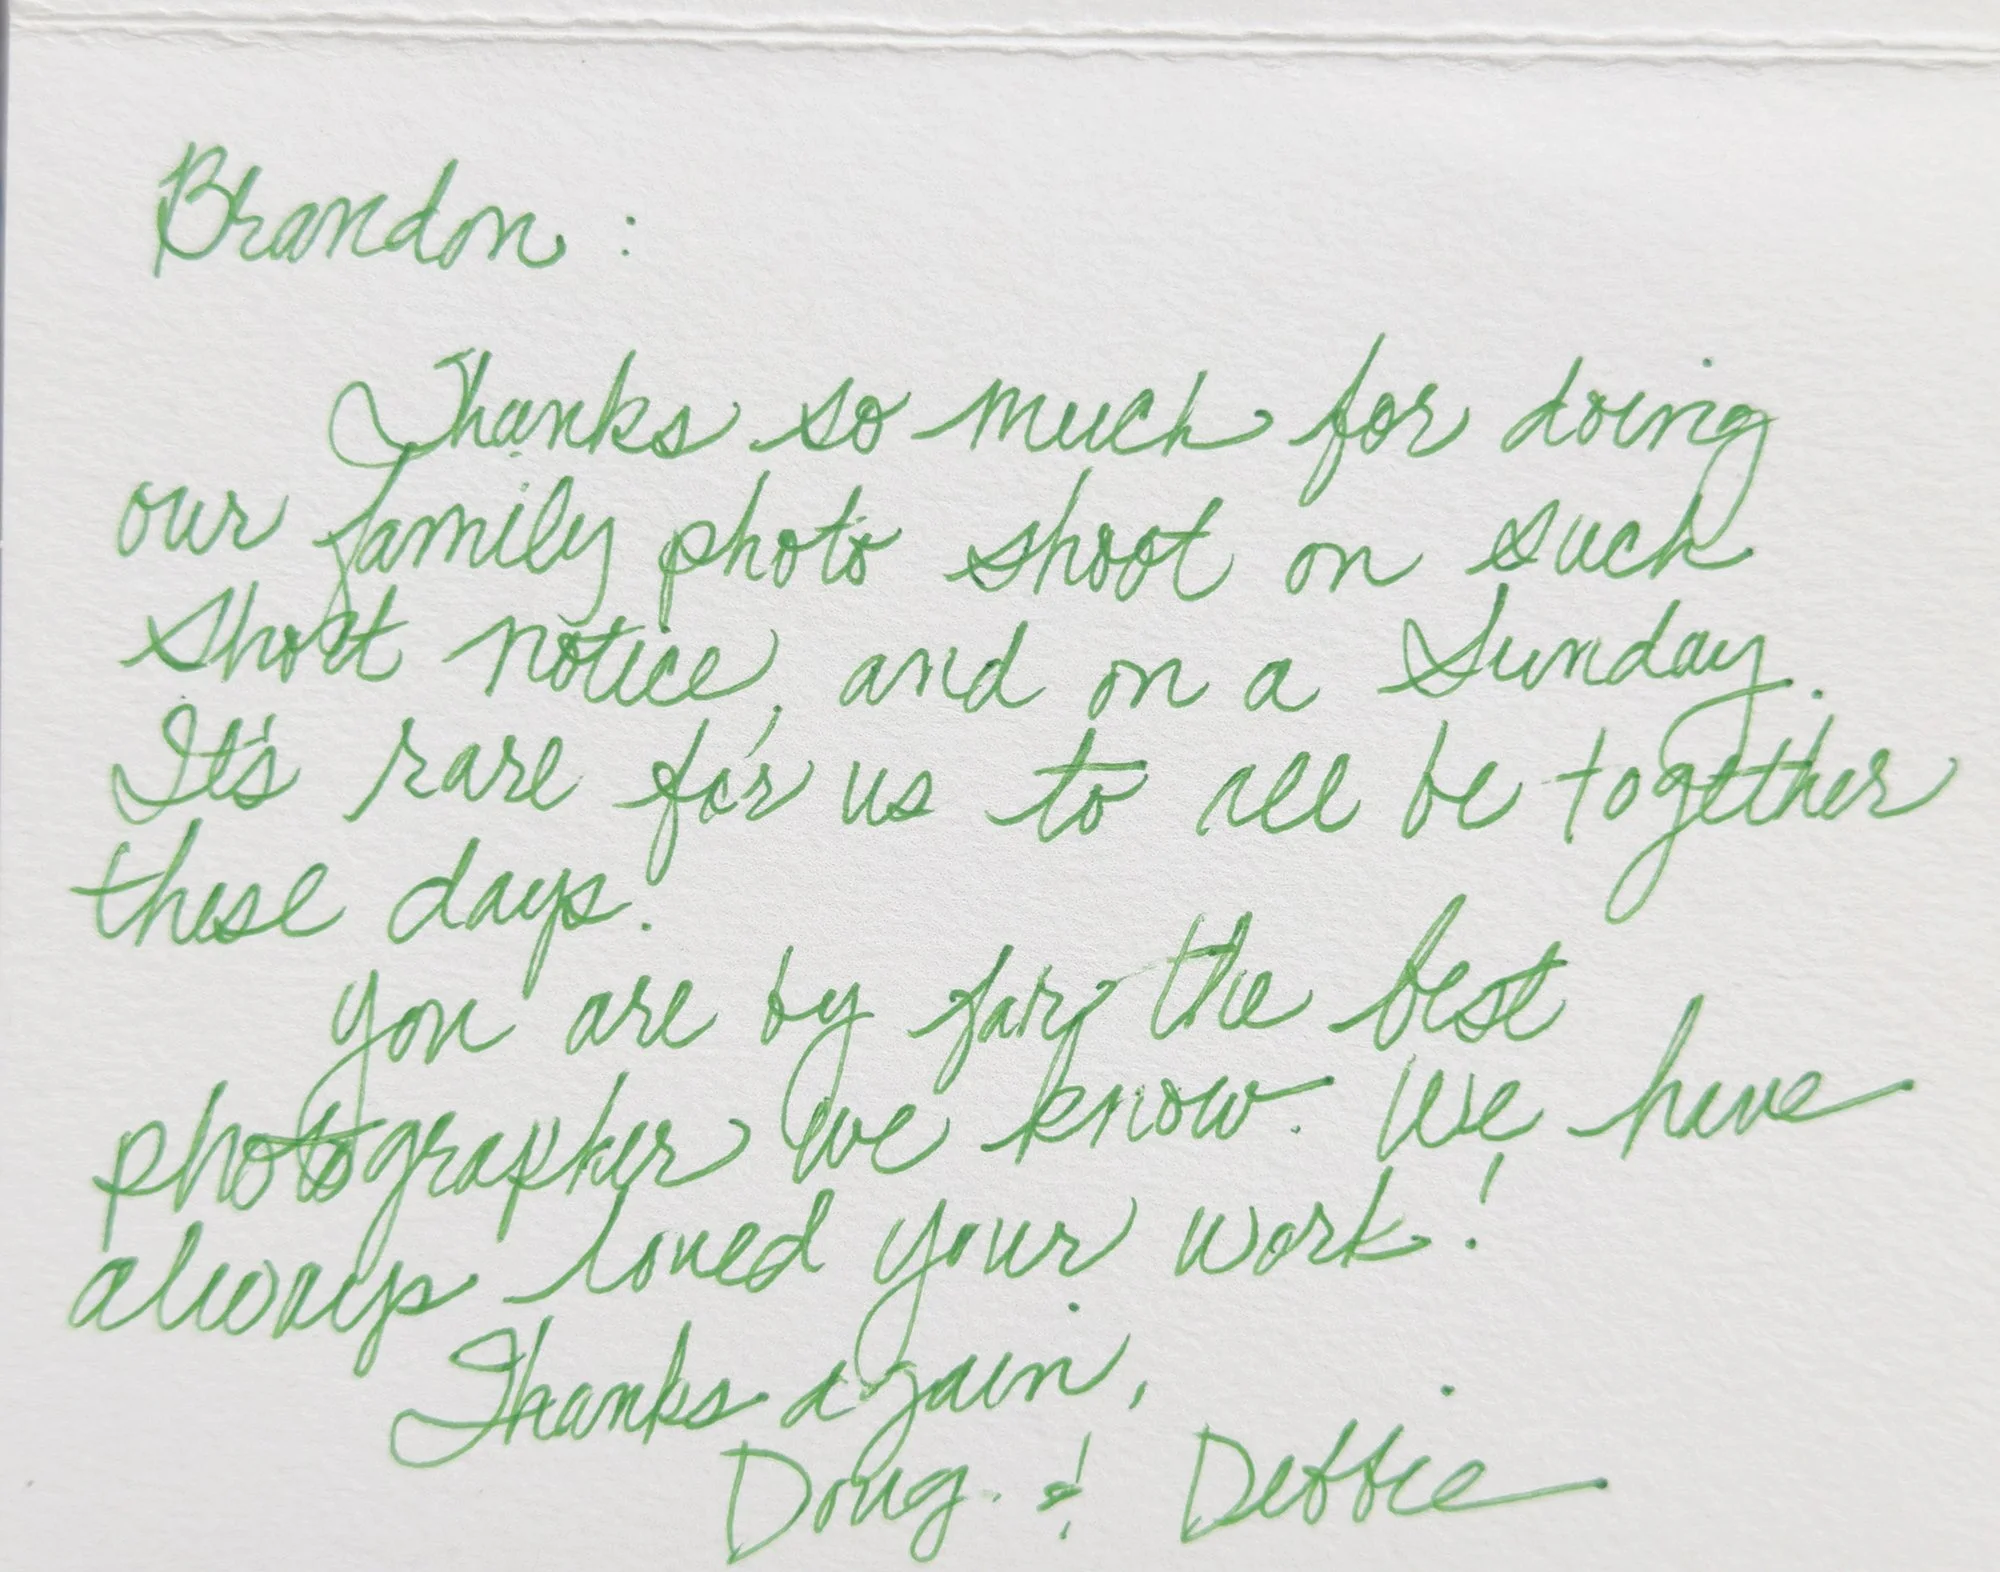 Brandon :
Thanks so much for doing
our family photo shoot on such
short notice, and on a Sunday.
It's rare for us to all be together
these days.
You are by far the best
photographer we know. We have
always loved your work!
Thanks again,
Doug & Debbie